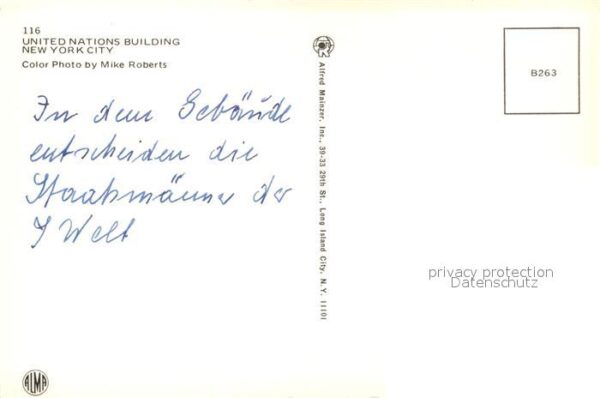 116
UNITED NATIONS BUILDING
NEW YORK CITY
Color Photo by Mike Roberts
In dem Gebäude
entscheiden die
Staatsmänner der
Welt
Alfred Mainzer, Inc., 39-33 29th St., Long Island City, N. Y. 11101
B263
privacy protection
Datenschutz
ALMA